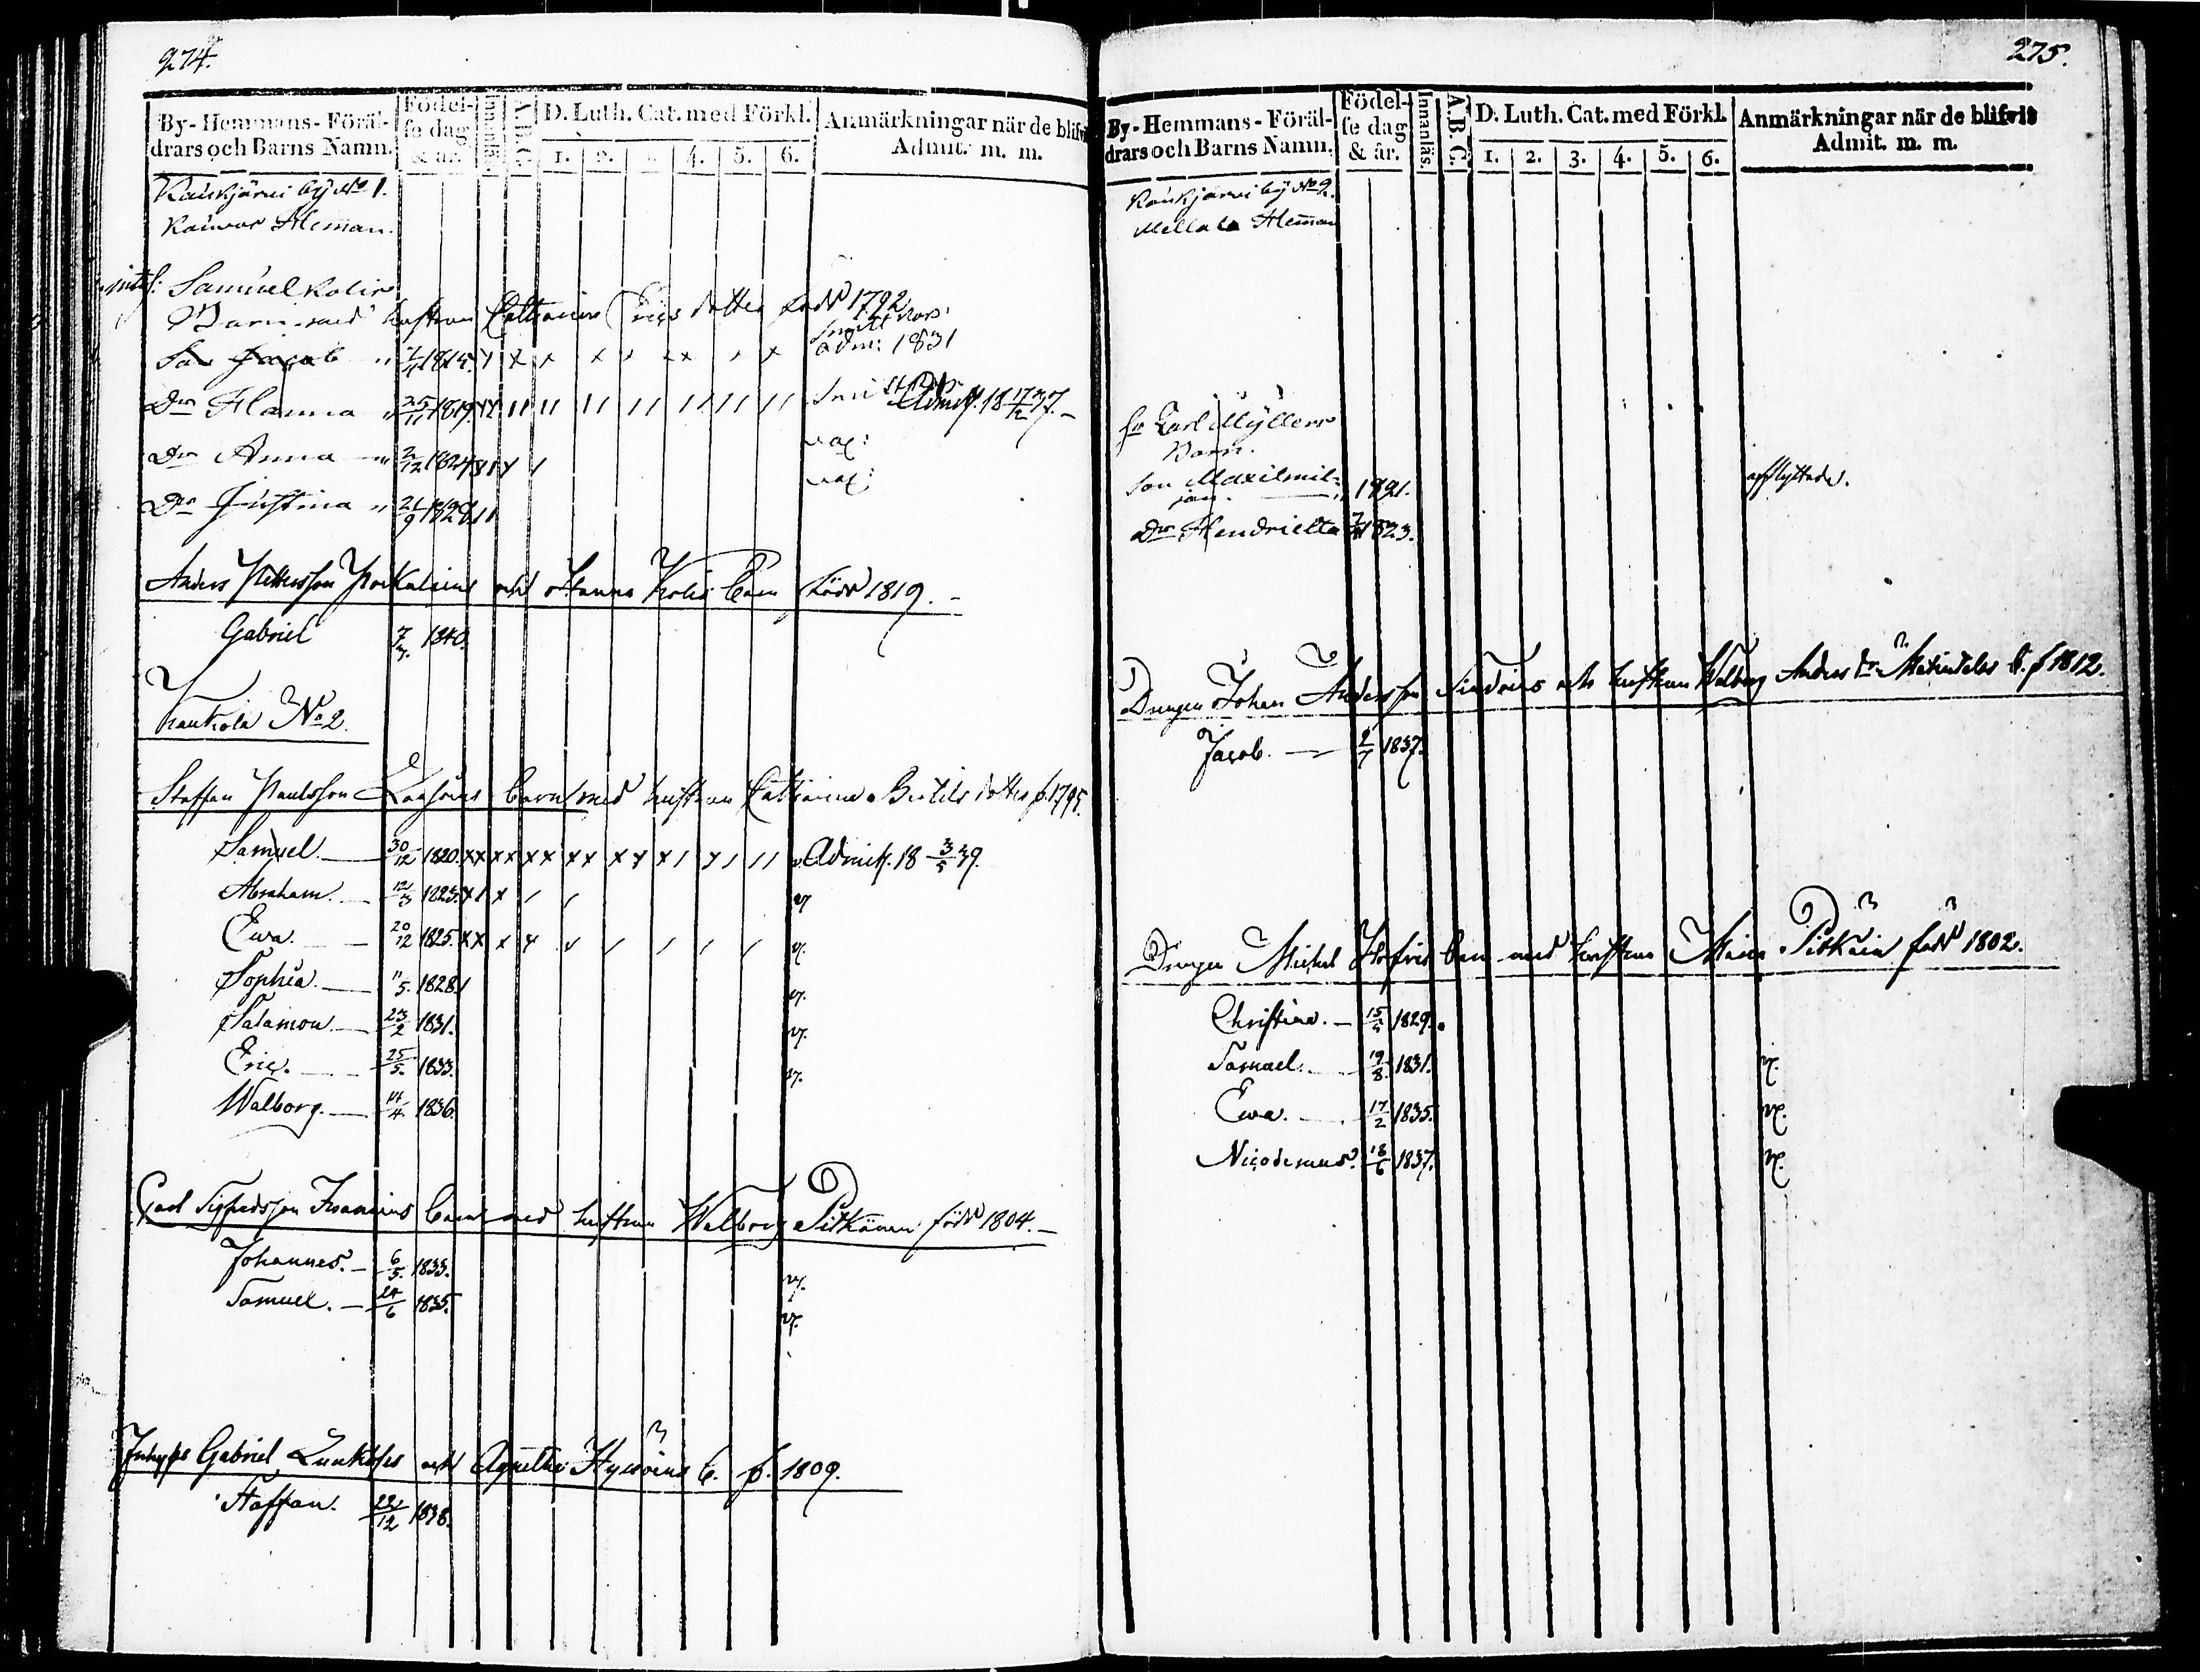 274.
By-Hemmans-Föräl-
drars och Barns Namn.
Födel-
se dag
& år.
Innanläs.
A.B.C.
D. Luth. Cat. med Förkl.
1. 2. 3. 4. 5. 6.
Anmärkningar när de blifvit
Admit. m. m.
Kaukjärvi by No 1.
Heman.
Samuel Kolis
Barn med hustrun Catharina Erics dotter född 1792
Son Jacob 1815 adm: 1831
Dr Hanna 25/11 1819 Admitt. 18 17/12 37.
Dr Anna 2/12 1824 vax:
Dr Justina 21/9 1829 vax:
Anders Pettersson och Hanna Kolis barn född 1819.
Gabriel 7/7. 1840.
No 2.
Staffan Paulsson barn med hustrun Catharina Bertils dotter f. 1795.
Samuel. 30/12 1820. Admitt. 18 3/5 39.
Abraham. 12/3 1823. v.
Ewa. 20/12 1825. v.
Sophia. 11/5. 1828. v.
Salamon. 23/2 1831. v.
Eric. 25/5. 1833. v.
Walborg. 14/4. 1836.
Carl Sigfredsson barn med hustrun Walborg Pitkänen född 1804.
Johannes. 6/5. 1833. v.
Samuel. 24/6 1835. v.
Inhyses Gabriel och Agnetha b. f. 1809.
Staffan. 22/12 1838.
275.
By-Hemmans-Föräl-
drars och Barns Namn.
Födel-
se dag
& år.
Innanläs.
A.B.C.
D. Luth. Cat. med Förkl.
1. 2. 3. 4. 5. 6.
Anmärkningar när de blifvit
Admit. m. m.
Kaukjärvi by No 2.
Mellala Heman
Carl Myllers
Barn.
son Maximil-
jan. 1821. afflyttade.
Dr Hendrietta 1823.
Drengen Johan Andersson och hustrun Walborg Anders dr b. f 1812.
Jacob. 1837.
Drengen Michel barn med hustrun Maria Pitkäin född 1802.
Christina. 1829.
Samuel. 19/8. 1831. v.
Ewa. 17/2 1835. v.
Nicodemus. 18/6 1837. v.